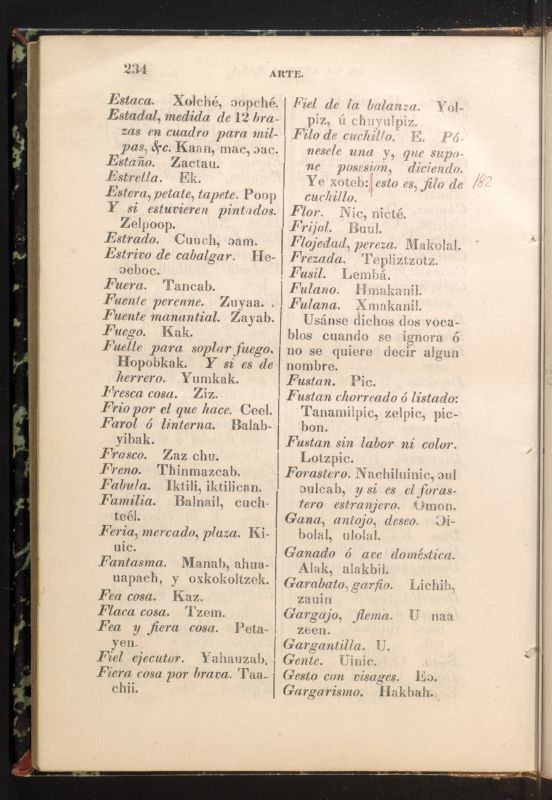 234
ARTE.
Estaca. Xolché, ɔopché.
Estadal, medida de 12 bra-
zas en cuadro para mil-
pas, &c. Kaan, mac, ɔac.
Estaño. Zactau.
Estrella. Ek.
Estera, petate, tapete. Poop
Y si estuvieren pintados.
Zelpoop.
Estrado. Cuuch, ɔam.
Estrivo de cabalgar. He-
ɔeboc.
Fuera. Tancab.
Fuente perenne. Zuyaa.
Fuente manantial. Zayab.
Fuego. Kak.
Fuelle para soplar fuego.
Hopobkak. Y si es de
herrero. Yumkak.
Fresca cosa. Ziz.
Frio por el que hace. Ceel.
Farol ó linterna. Balab-
yibak.
Frasco. Zaz chu.
Freno. Thinmazcab.
Fabula. Iktili, iktilican.
Familia. Balnail, cuch-
teél.
Feria, mercado, plaza. Ki-
uic.
Fantasma. Manab, ahua-
uapach, y oxkokoltzek.
Fea cosa. Kaz.
Flaca cosa. Tzem.
Fea y fiera cosa. Peta-
yen.
Fiel ejecutor. Yahauzab.
Fiera cosa por brava. Taa-
chii.
Fiel de la balanza. Yol-
piz, ú chuyulpiz.
Filo de cuchillo. E. Pó-
nesele una y, que supo-
ne posesion, diciendo.
Ye xoteb: esto es, filo de 182
cuchillo.
Flor. Nic, nicté.
Frijol. Buul.
Flojedad, pereza. Makolal.
Frezada. Tepliztzotz.
Fusil. Lembá.
Fulano. Hmakanil.
Fulana. Xmakanil.
Usánse dichos dos voca-
blos cuando se ignora ó
no se quiere decir algun
nombre.
Fustan. Pic.
Fustan chorreado ó listado:
Tanamilpic, zelpic, pic-
bon.
Fustan sin labor ni color.
Lotzpic.
Forastero. Nachiluinic, ɔul
ɔulcab, y si es el foras-
tero estranjero. Omon.
Gana, antojo, deseo. Ɔi-
bolal, ulolal.
Ganado ó ave doméstica.
Alak, alakbil.
Garabato, garfio. Lichib,
zauin
Gargajo, flema. U naa
zeen.
Gargantilla. U.
Gente. Uinic.
Gesto con visages. Eɔ.
Gargarismo. Hakbah.